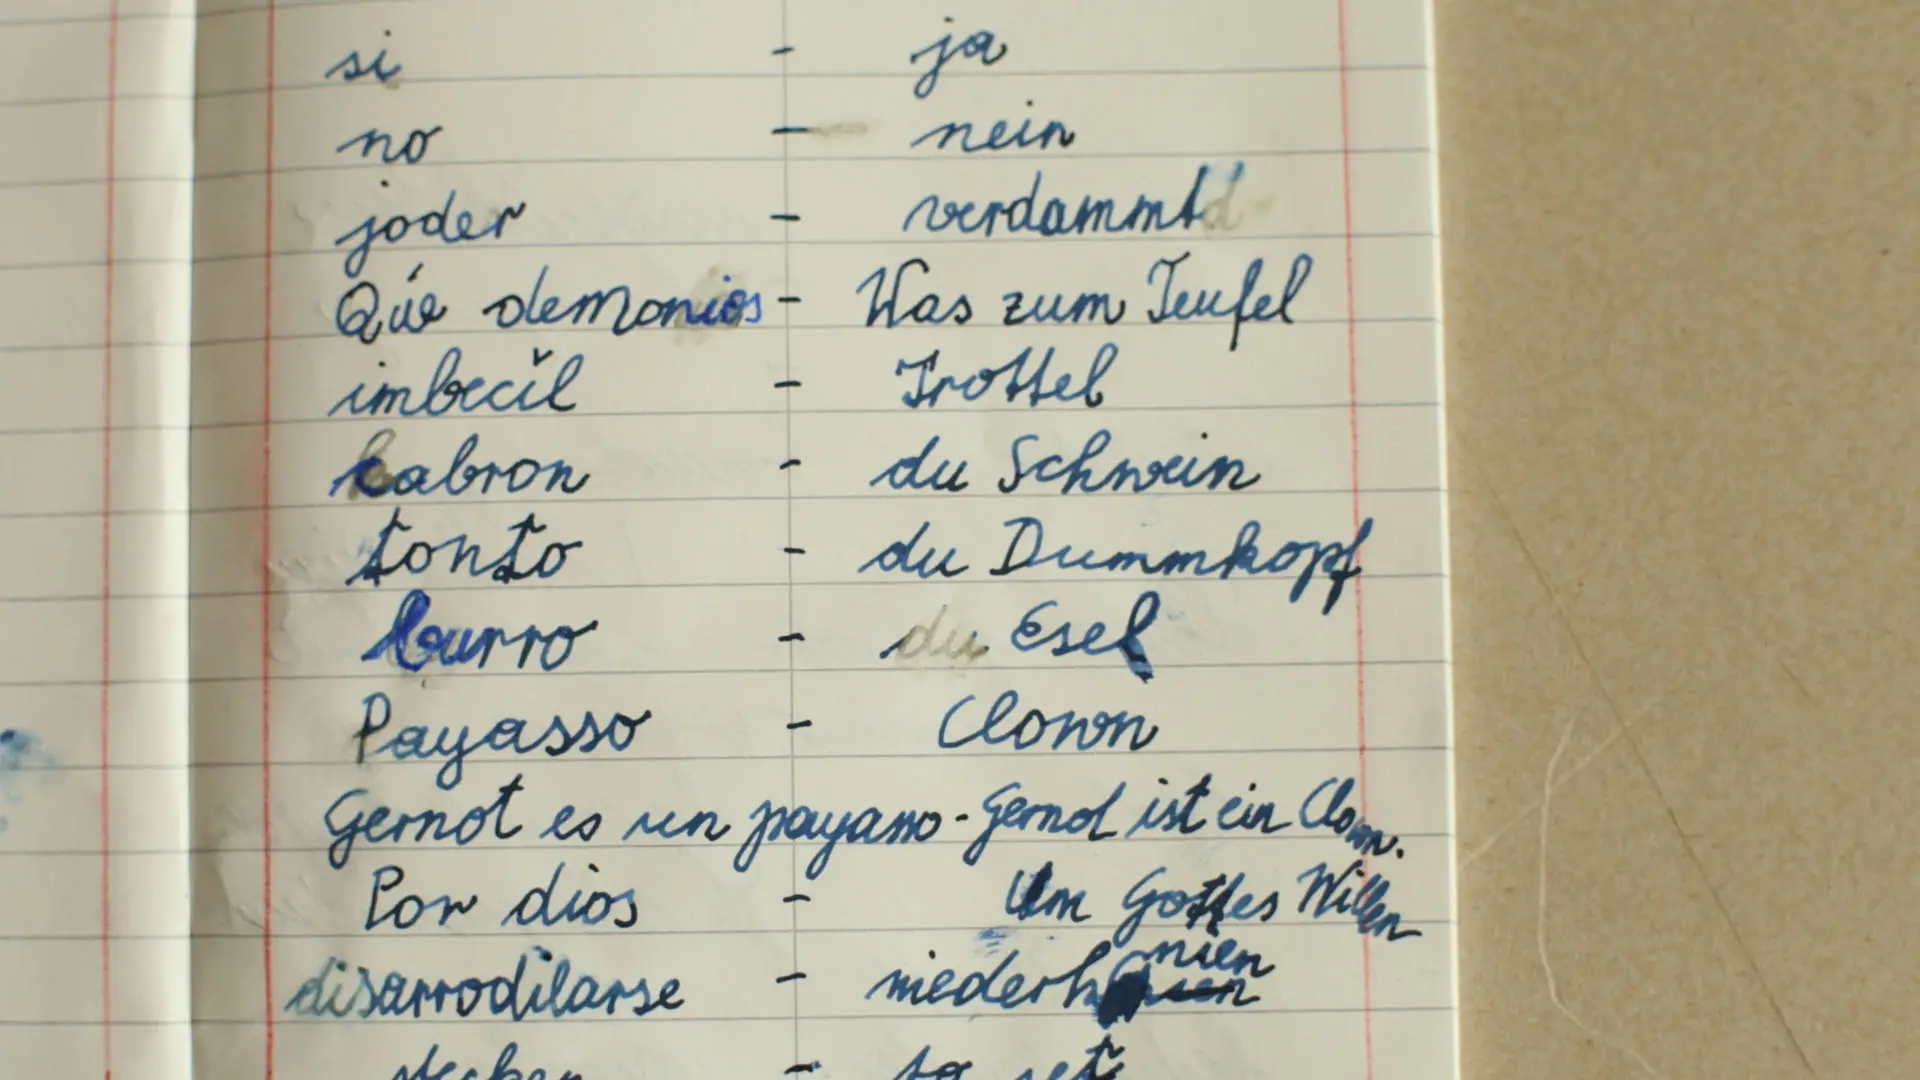 si - ja
no - nein
joder - verdammt
Qúe demonios - Was zum Teufel
imbecil - Trottel
cabron - du Schwein
tonto - du Dummkopf
burro - du Esel
Payasso - Clown
Gernot es un payasso - Gernot ist ein Clown.
Por dios - Um Gottes Willen
disarrodilarse - nien
stecken - to set